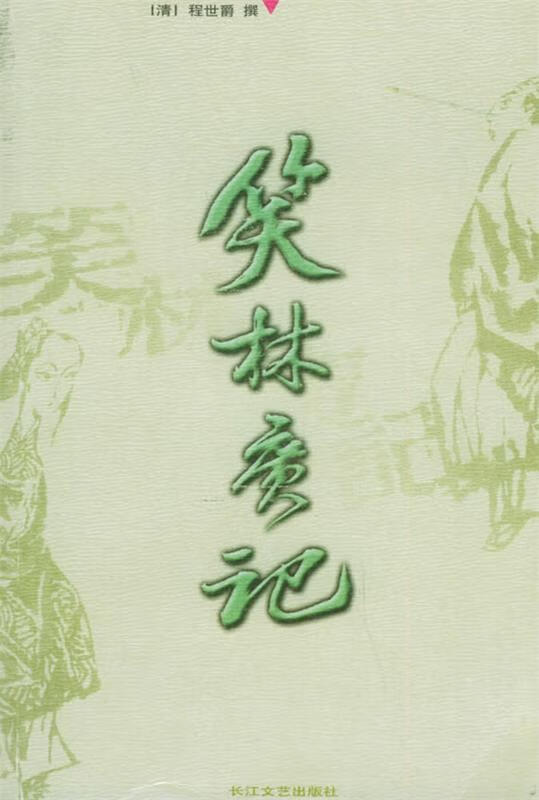 ［清］程世爵 撰
笑林广记
长江文艺出版社